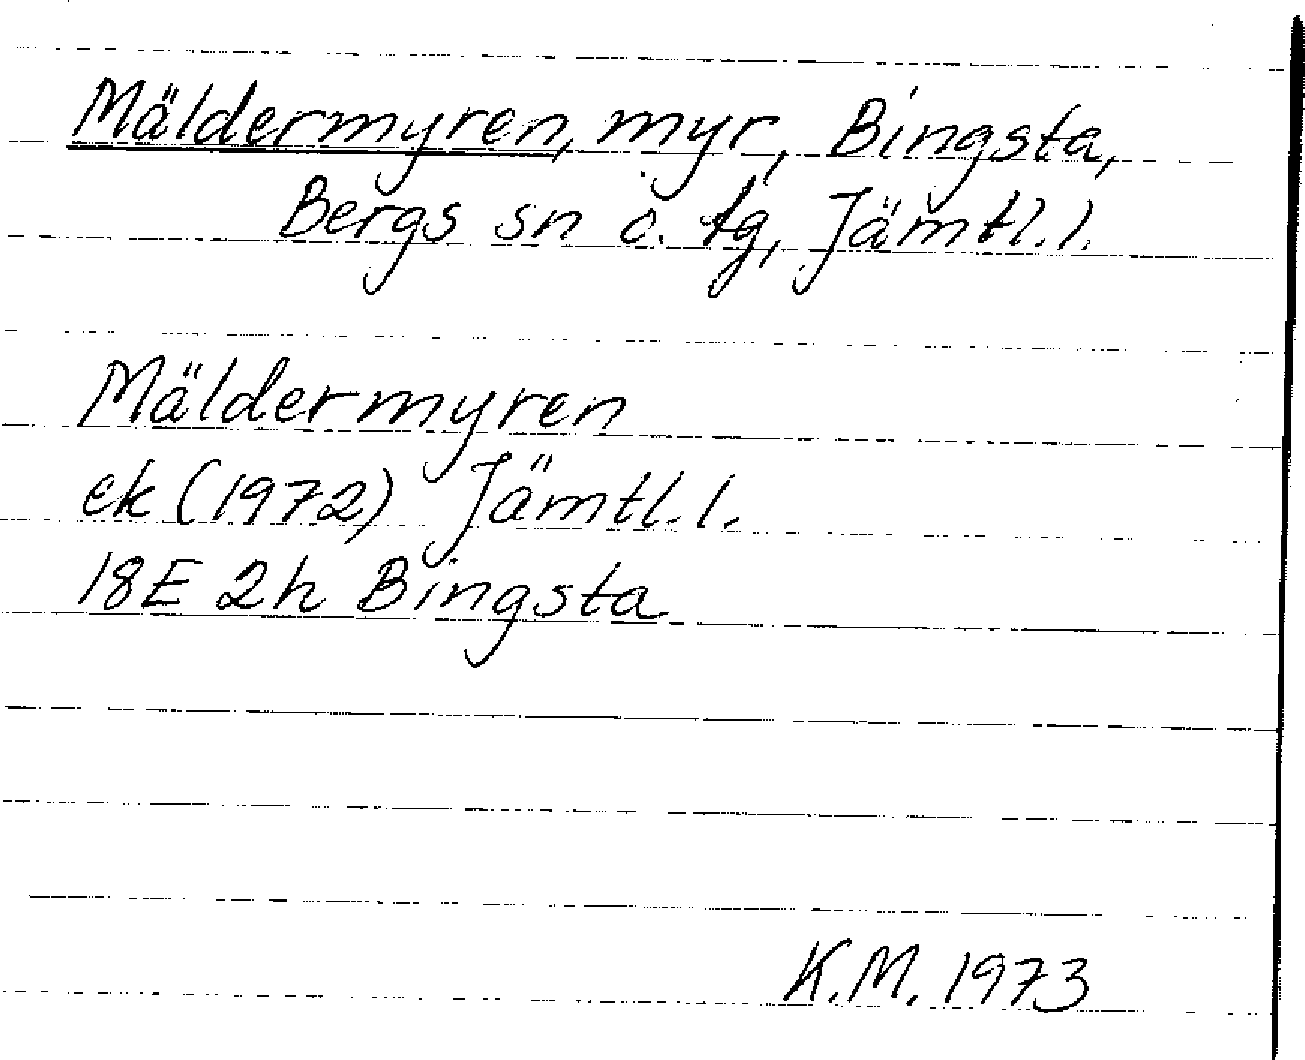 Mäldermyren, myr, Bingsta,
Bergs sn o. tg, Jämtl. l.
Mäldermyren
ek (1972) Jämtl. l.
18E 2h Bingsta
K.M. 1973